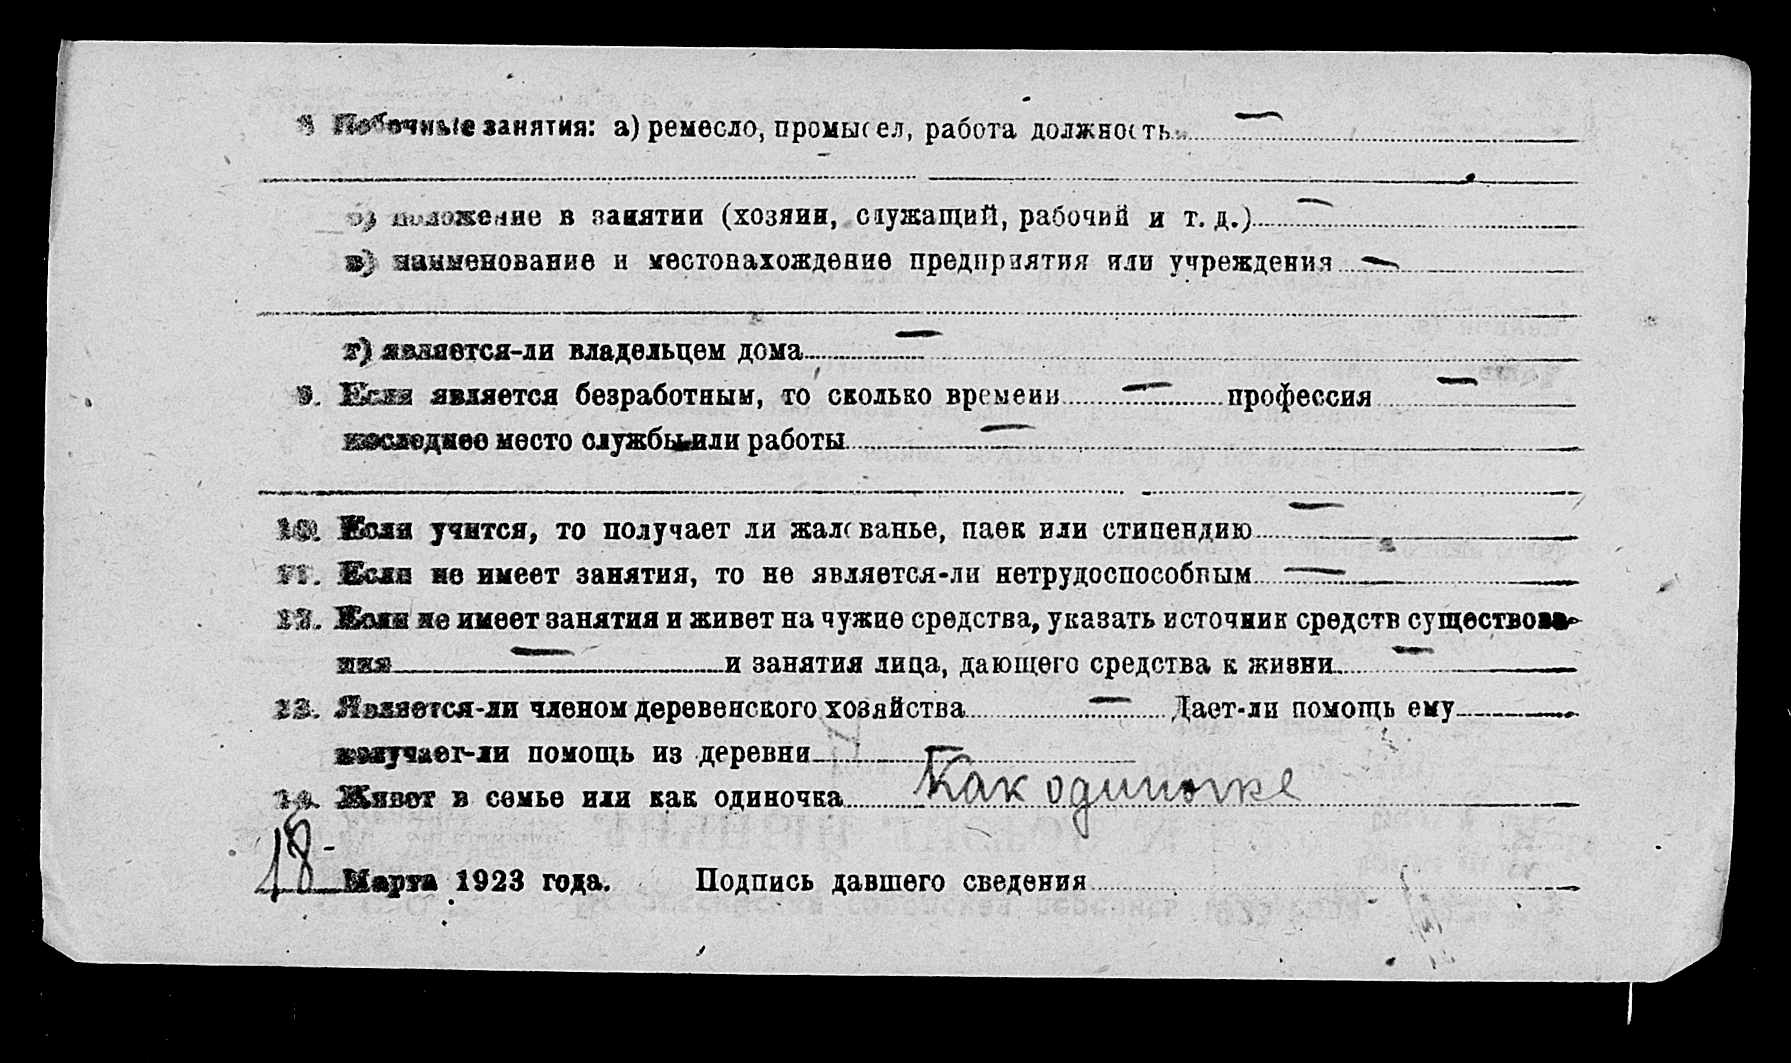 8 Побочные занятия: а) ремесло, промысел, работа должность —
б) положение в занятии (хозяин, служащий, рабочий и т. д.) —
в) наименование и местонахождение предприятия или учреждения —
г) является-ли владельцем дома —
9. Если является безработным, то сколько времени — профессия —
последнее место службы или работы —
10. Если учится, то получает ли жалованье, паек или стипендию —
11. Если не имеет занятия, то не является-ли нетрудоспособным —
12. Если не имеет занятия и живет на чужие средства, указать источник средств существова-
ния — и занятия лица, дающего средства к жизни —
13. Является-ли членом деревенского хозяйства — Дает-ли помощь ему
получает-ли помощь из деревни —
14. Живет в семье или как одиночка Как одиночке
18 Марта 1923 года. Подпись давшего сведения